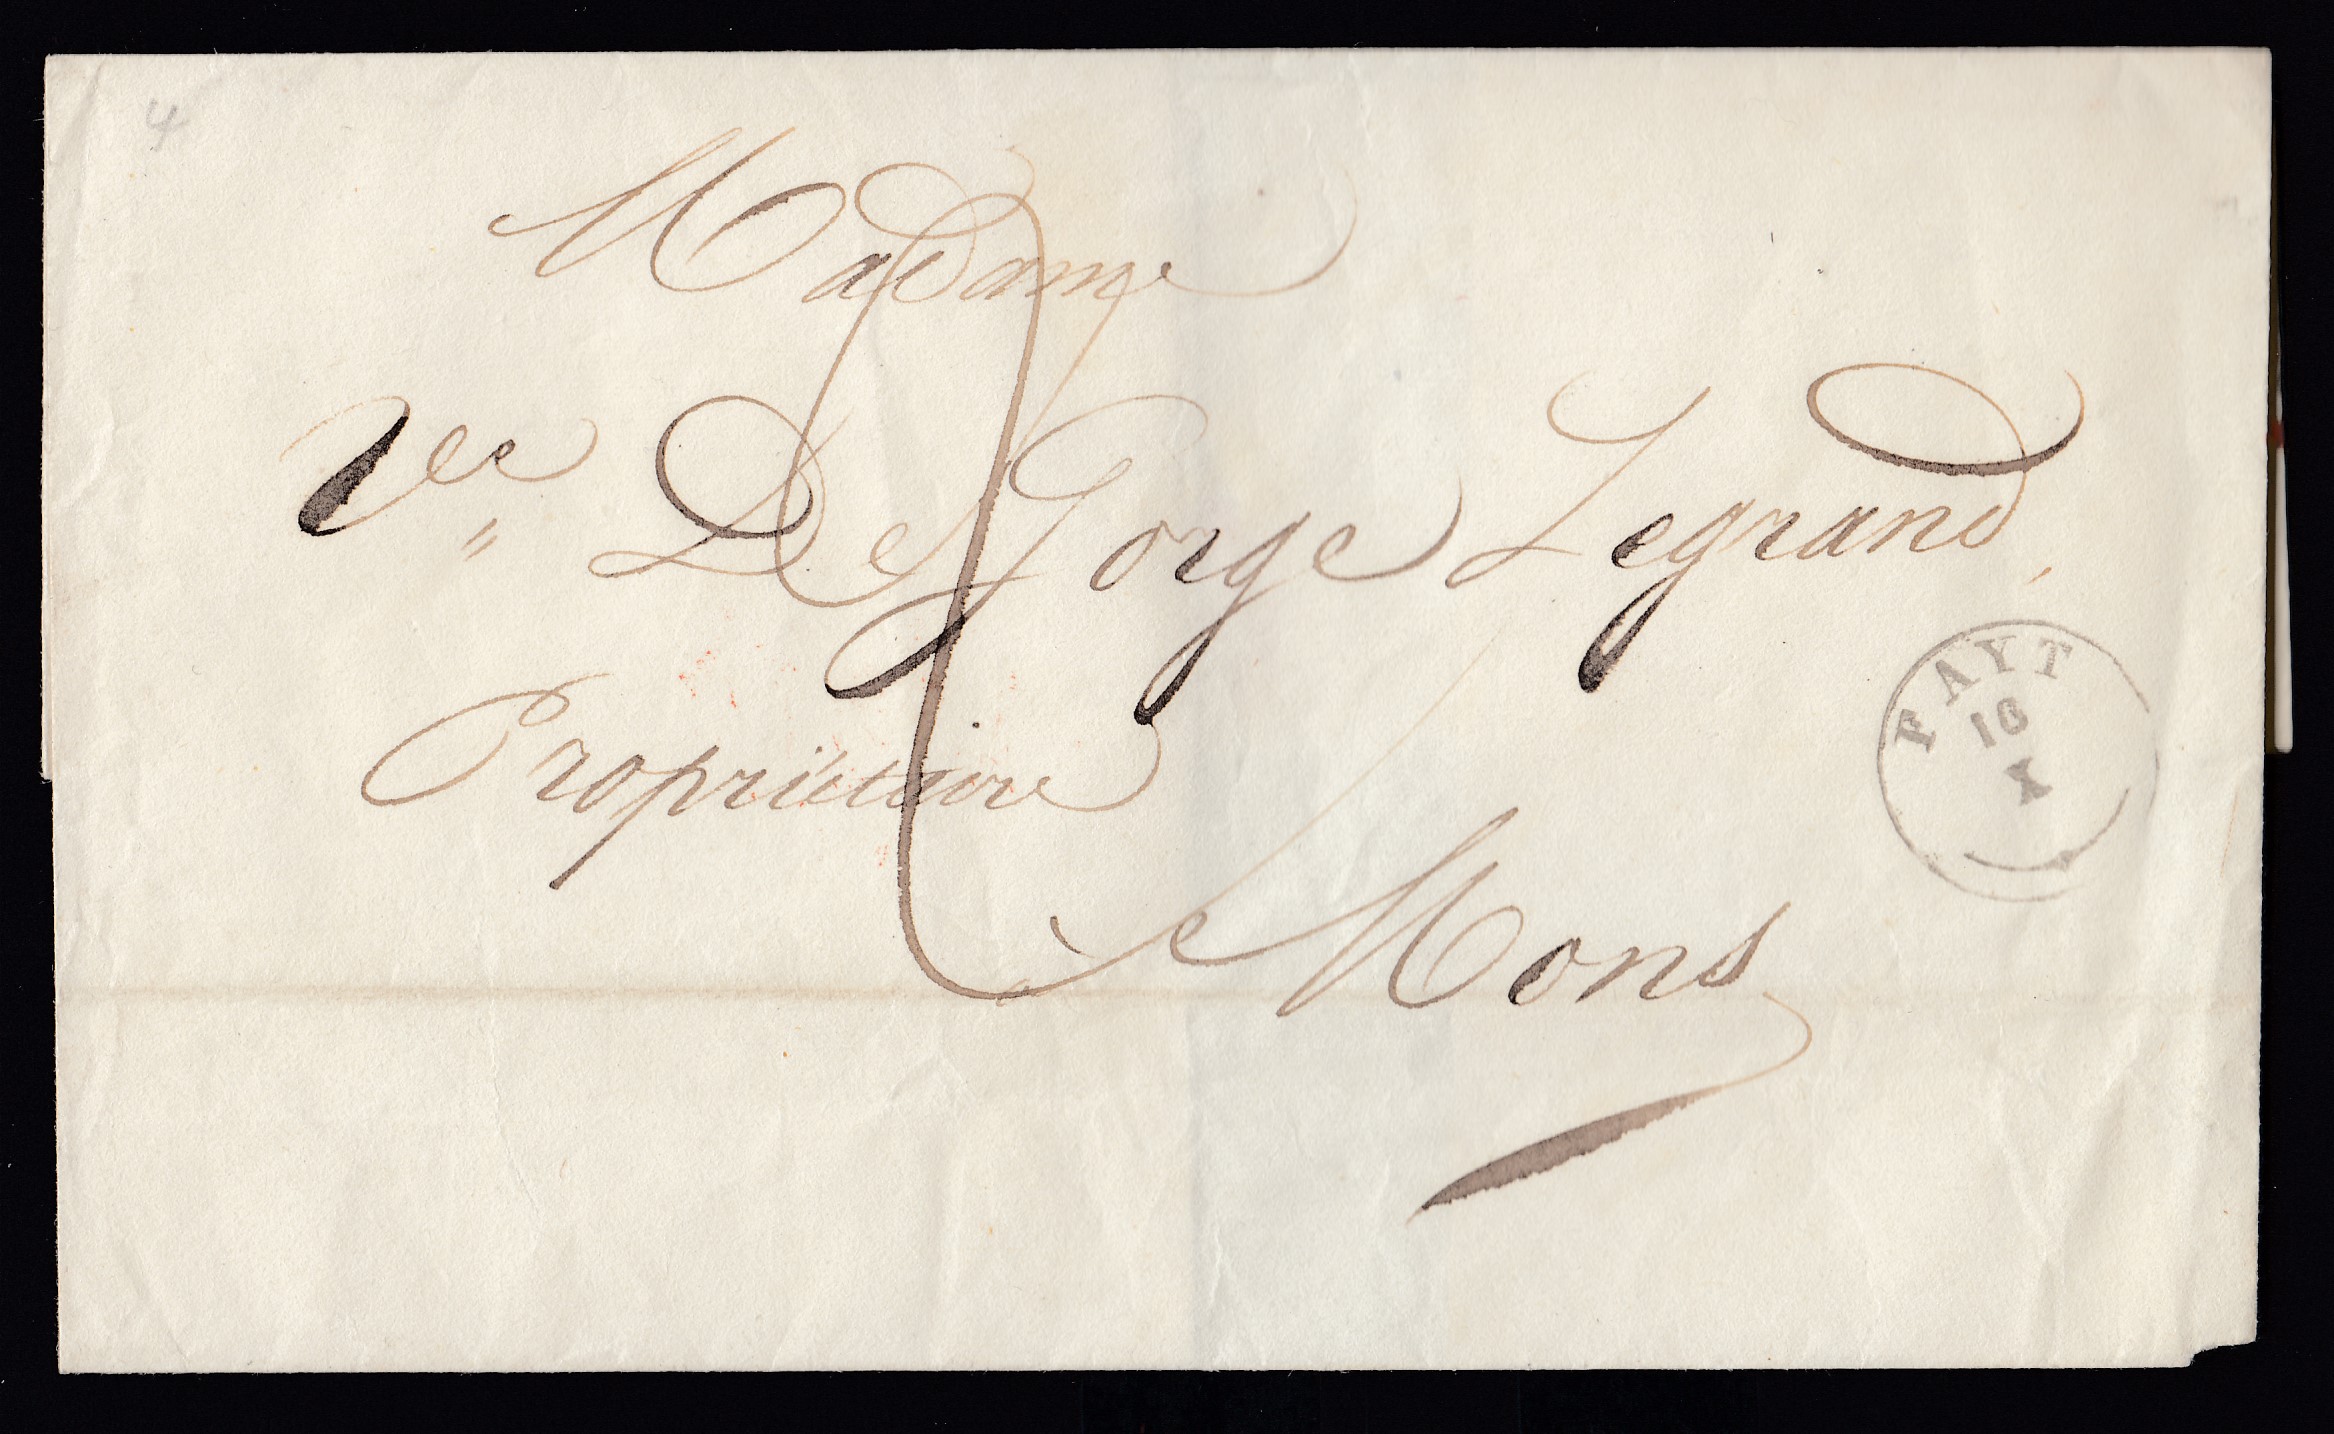 4
Madame
Vve De Gorge Legrand,
Propriétaire
à Mons
FAYT
10
X